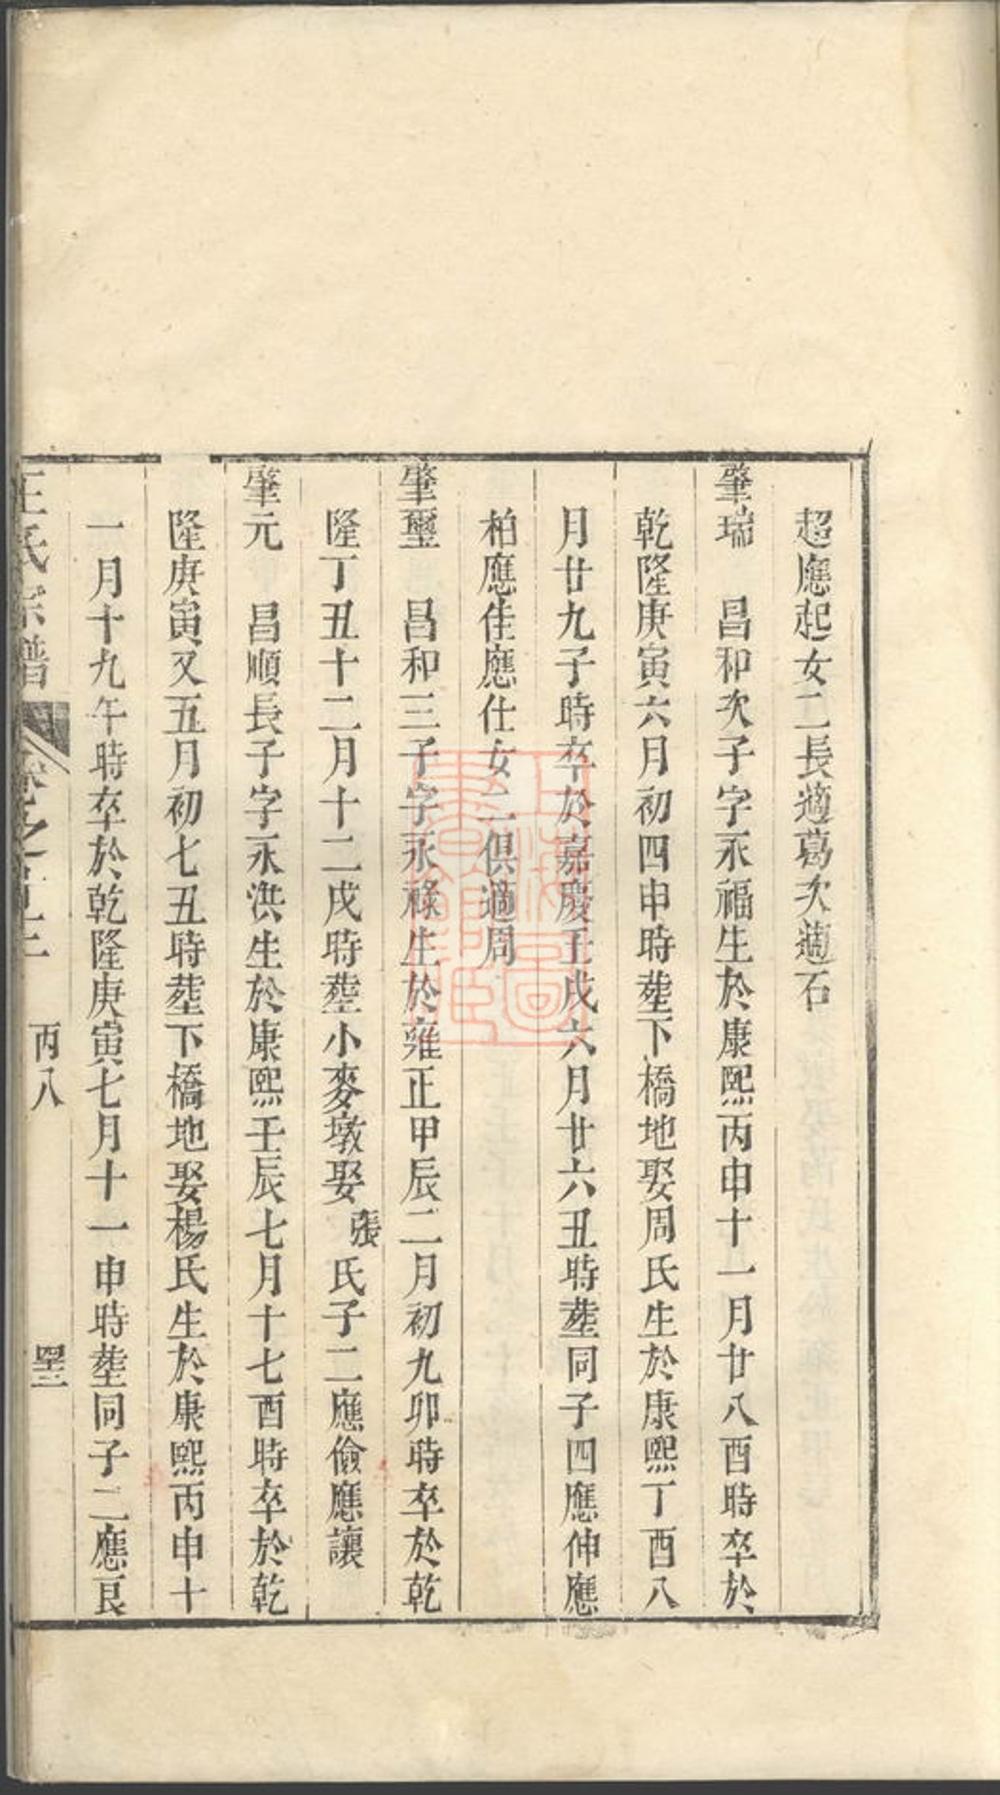 超應起女二長適葛次適石
肇瑞 昌和次子字永福生於康熙丙申十一月廿八酉時卒於
乾隆庚寅六月初四申時塟下橋地娶周氏生於康熙丁酉八
月廿九子時卒於嘉慶壬戌六月廿六丑時塟同子四應伸應
柏應佳應仕女二俱適周
肇璽 昌和三子字永祿生於雍正甲辰二月初九卯時卒於乾
隆丁丑十二月十二戌時塟小麥墩娶張氏子二應儉應讓
肇元 昌順長子字永洪生於康熙壬辰七月十七酉時卒於乾
隆庚寅又五月初七丑時塟下橋地娶楊氏生於康熙丙申十
一月十九午時卒於乾隆庚寅七月十一申時塟同子二應良
王氏宗譜 卷之 丙八
上海圖書館藏